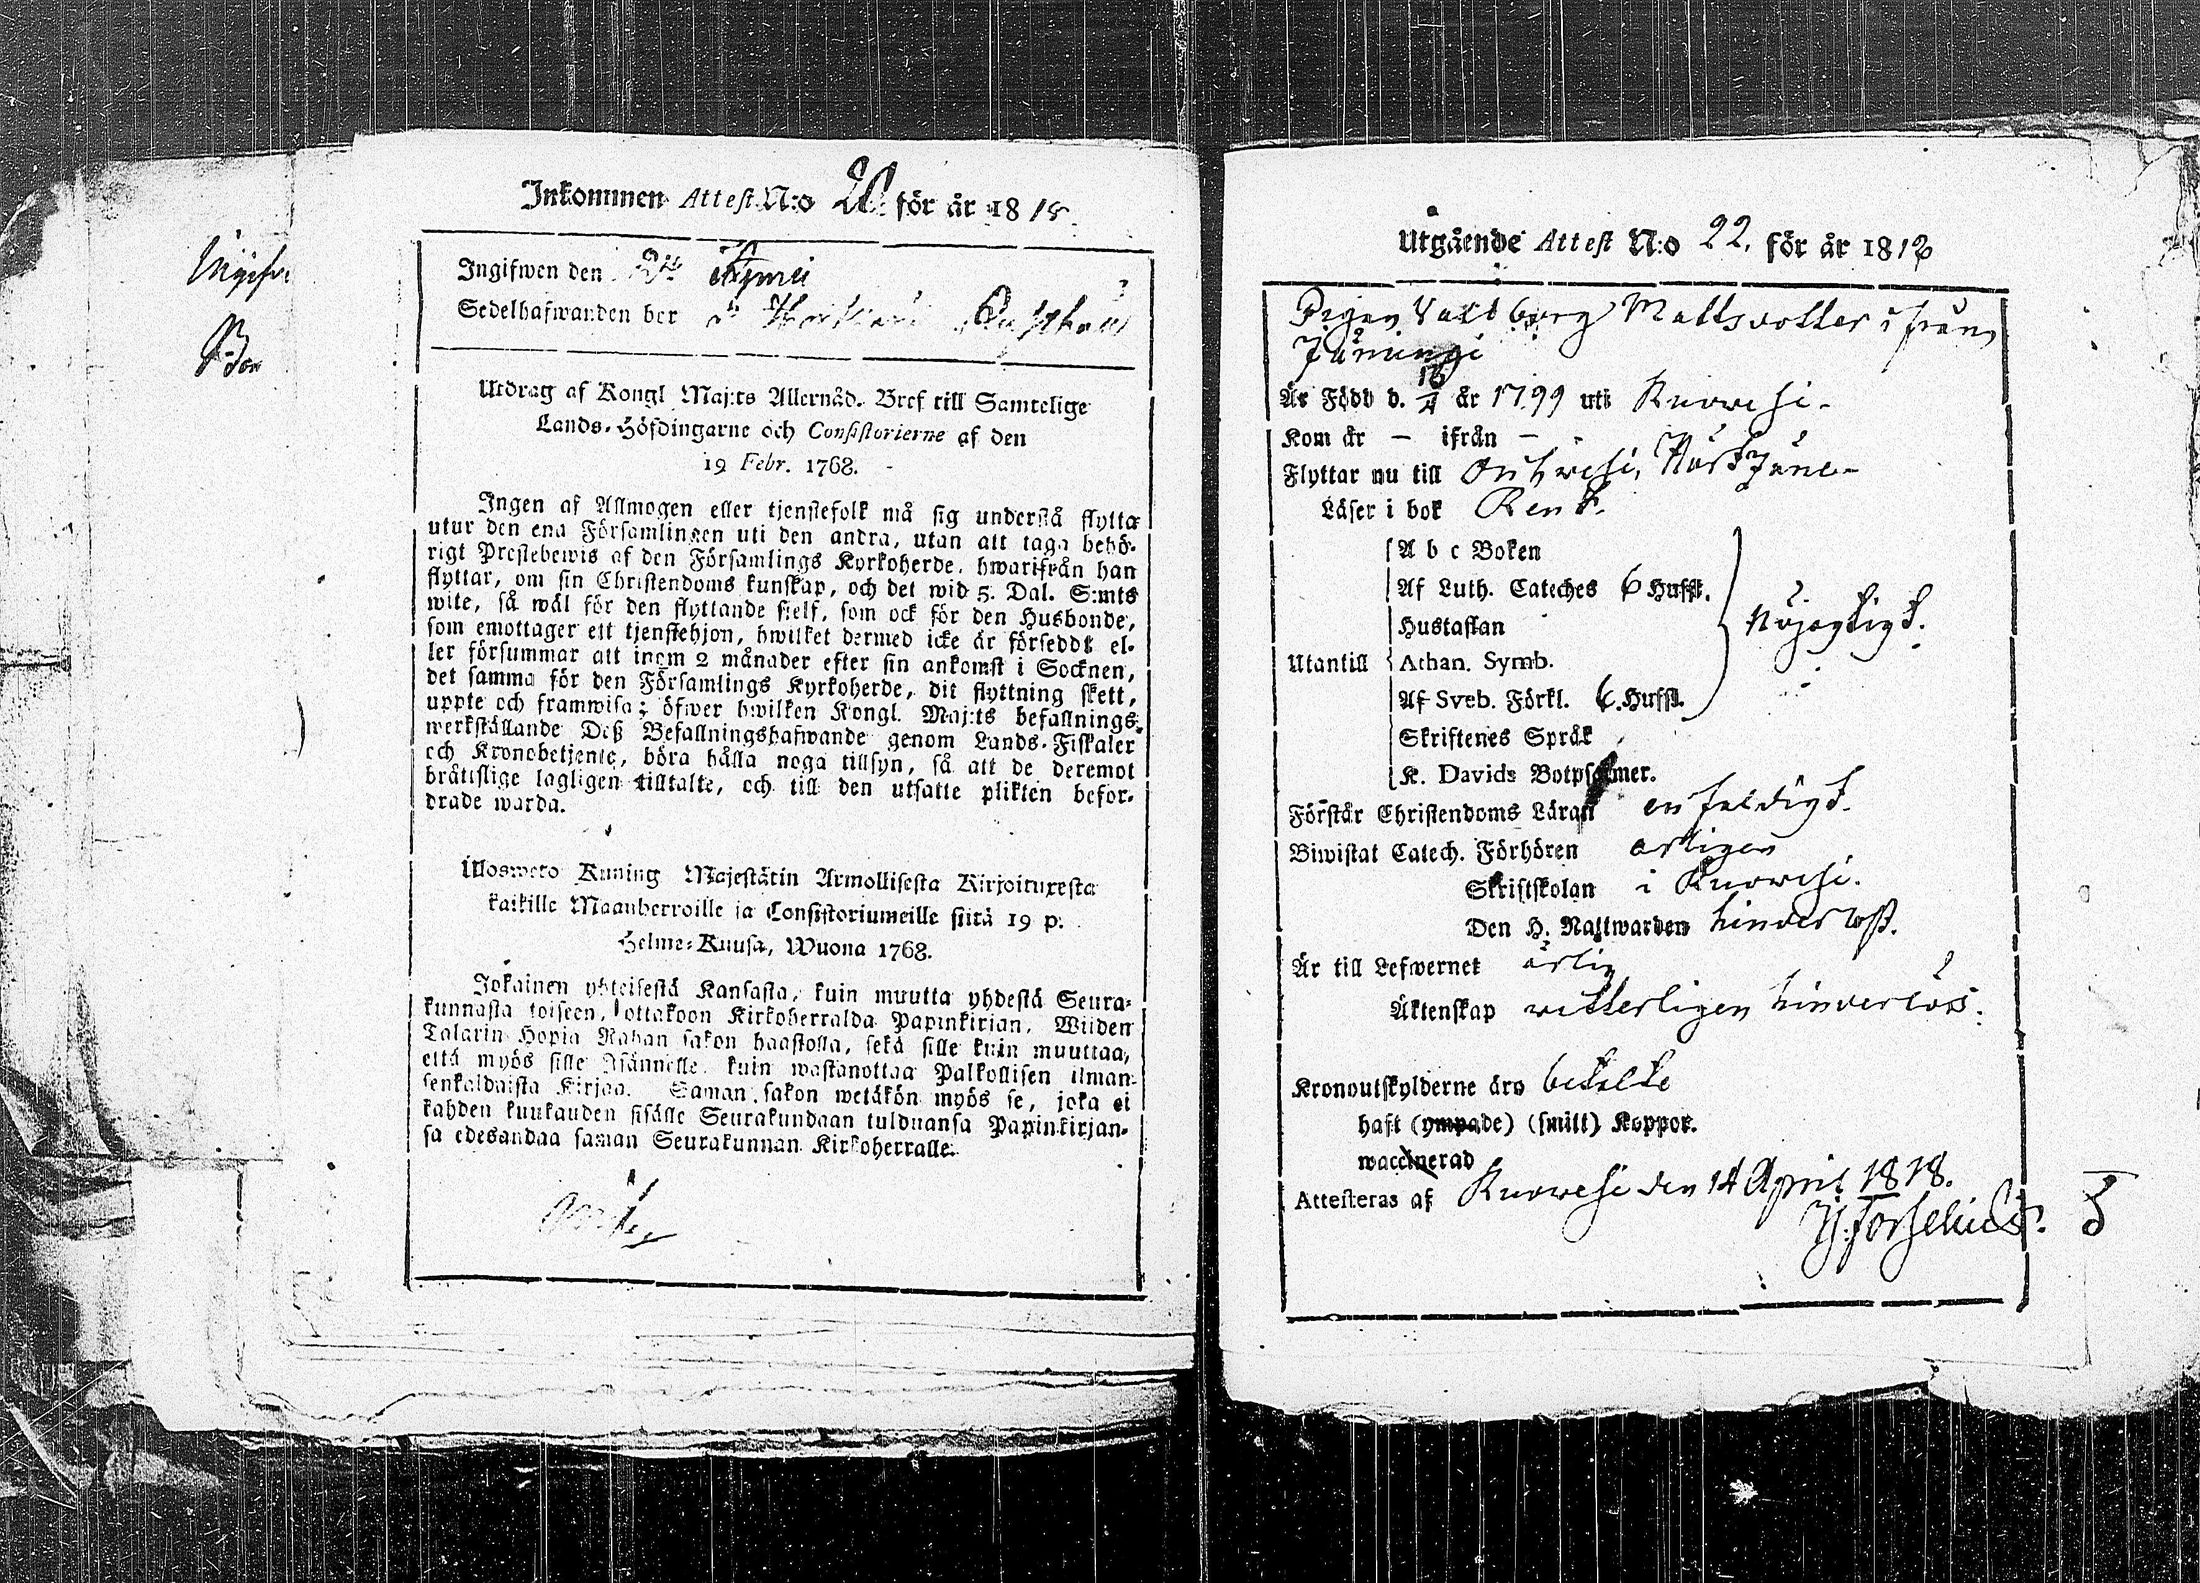 Inkommen Attest N:o 20. för år 1818
Ingifwen den
Sedelhafwanden bor
Utdrag af Kongl Maj:ts Allernåd. Bref till Samtelige
Lands-Höfdingarne och Consistorierne af den
19 Febr. 1768.
Ingen af Allmogen eller tjenstefolk må sig understå flytta
utur den ena Församlingen uti den andra, utan att taga behö-
rigt Prestebewis af den Församlings Kyrkoherde, hwarifrån han
flyttar, om sin Christendoms kunskap, och det wid 5. Dal. S:mts
wite, så wäl för den flyttande sjelf, som ock för den Husbonde,
som emottager ett tjenstehjon, hwilket dermed icke är förseddt el-
ler försummar att inom 2 månader efter sin ankomst i Socknen,
det samma för den Församlings Kyrkoherde, dit flyttning skett,
uppte och framwisa; öfwer hwilken Kongl. Maj:ts befallnings
werkställande Deß Befallningshafwande genom Lands-Fiskaler
och Kronobetjente, böra hålla noga tillsyn, så att de deremot
bråttslige lagligen tilltalte, och till den utsatte plikten befor-
drade warda.
Ulosweto Kuning Majestätin Armollisesta Kirjoituxesta
kaikille Maanherroille ja Consistoriumeille siitä 19 p.
Helme-Kuusa, Wuona 1768.
Jokainen yhteisestä Kansasta, kuin muutta yhdestä Seura-
kunnasta toiseen, ottakoon Kirkoherralda Papinkirjan, Wiiden
Talarin Hopia Rahan sakon haastolla, sekä sille kuin muuttaa,
että myös sille Isännelle, kuin wastanottaa Palkollisen ilman
senkaldaista Kirjaa. Saman sakon wetäkön myös se, joka ei
kahden kuukauden sisälle Seurakundaan tulduansa Papinkirjan-
sa edesandaa saman Seurakunnan Kirkoherralle.
Utgående Attest N:o 22. för år 1818
Pigan Valborg Mattsdotter ifrån
Är Född d. 16/4 år 1799 uti Ruovesi.
Kom år – ifrån –
Flyttar nu till Orihvesi,
Läser i bok Rent.
A b c Boken
Af Luth. Cateches 6 Hufst.
Hustaflan
Nöjagtigt.
Utantill
Athan. Symb.
Af Sveb. Förkl. 6. Hufst.
Skriftenes Språk
K. Davids Botpsalmer.
Förstår Christendoms Läran enfaldigt.
Biwistat Catech. Förhören årligen
Skriftskolan i Ruovesi.
Den H. Nattwarden hinderlöst.
Är till Lefwernet ärlig
Äktenskap witterligen hinderlös.
Kronoutskylderne äro betalte
haft (ympade) (smitt) Koppor.
waccinerad
Attesteras af Ruovesi den 14 April 1818.
Hj. Forselius.